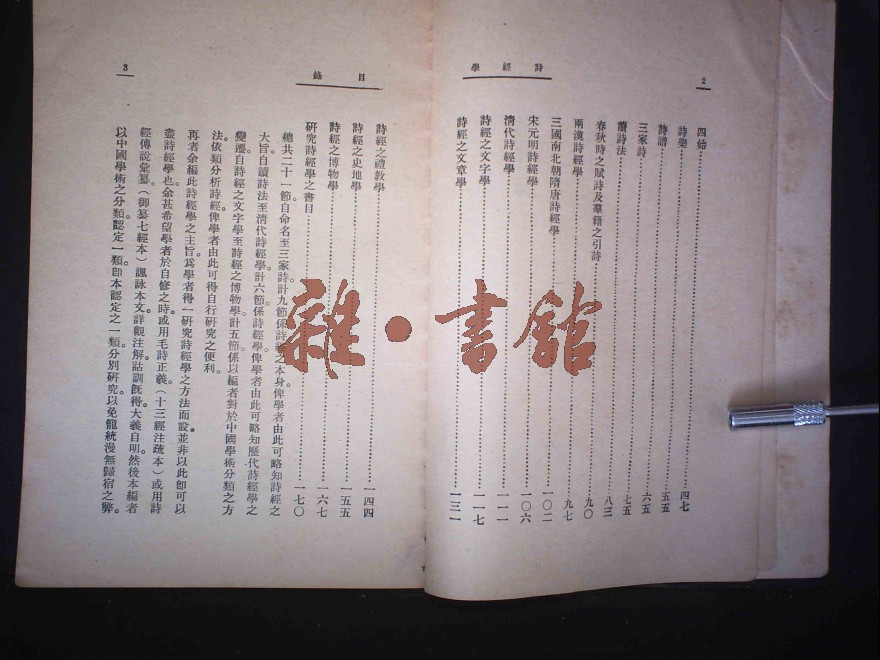 2
詩經學
四始 四七
詩樂 五五
詩譜 六五
三家詩 七五
讀詩法 八三
春秋時之賦詩及羣籍之引詩 九〇
兩漢詩經學 九七
三國南北朝隋唐詩經學 一〇二
宋元明詩經學 一〇六
清代詩經學 一一一
詩經之文字學 一一七
詩經之文章學 一三一
目錄
3
詩經之禮教學 一四四
詩經之史地學 一五五
詩經之博物學 一六七
研究詩經學之書目 一七〇
總共二十一節。自命名至三家詩。計九節係詩經之本身。俾學者由此可略知詩經之
大旨。自讀詩法至清代詩經學。計六節。係詩經學。俾學者由此可略知歷代詩經學之
變遷。自詩經之文字學至詩經之博物學。計五節。係以編者對於中國學術分類之方
法。依類分析詩經。俾學者由此可得自行研究之便利。
再者余編此詩經學之主旨。爲學者得一研究詩經學之方法而設。並非以此卽可以
盡詩經學也。余甚希望學者於自修之時。或用毛詩正義(十三經注疏本)或用詩
經傳說彙纂(御纂七經本)諷詠本文。詳觀注解。詁訓旣得。大義自明。然後本編者
以中國學術之分類。認定一類。卽本認定之一類。分別研究。以免籠統漫無歸宿之弊。
雜·書館